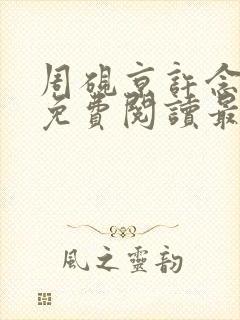 周硯京許念
免費閱讀最
風之靈韵